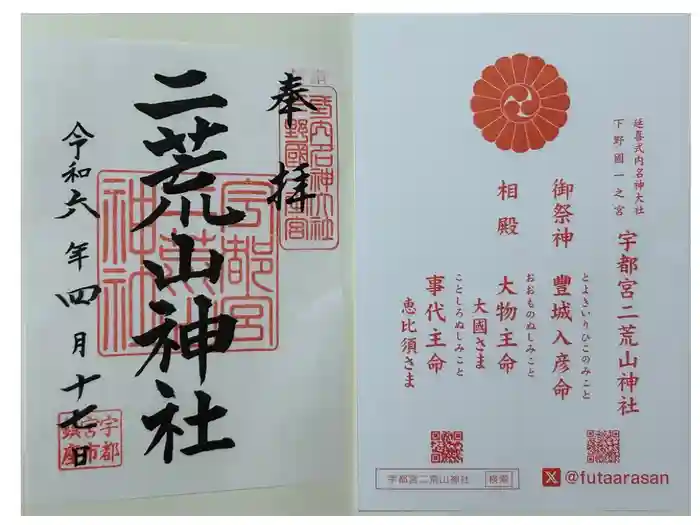 奉拝
二荒山神社
令和六年四月十七日
宇都宮二荒山神社
宇都宮市鎮座
延喜式内名神大社
下野國一之宮
宇都宮二荒山神社
御祭神
豐城入彦命
とよきいりひこのみこと
相殿
大物主命
おおものぬしのみこと
大國さま
事代主命
ことしろぬしみこと
恵比須さま
宇都宮二荒山神社 検索
X @futaarasan